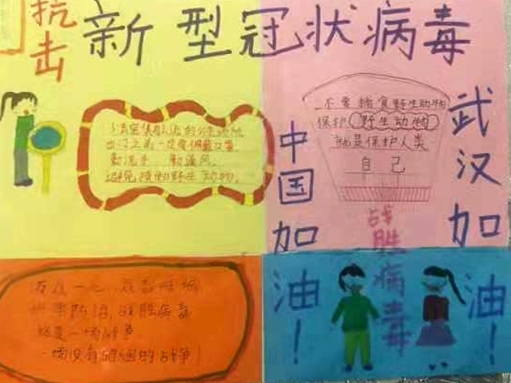 抗击
新型冠状病毒
出门上学一定要佩戴口罩
勤洗手 勤通风
避免接触野生动物.
不要捕食野生动物
保护野生动物
就是保护人类
自己
武汉加油！
中国加油！
战胜病毒
战胜病毒
这是一场战争
一场没有硝烟的战争！